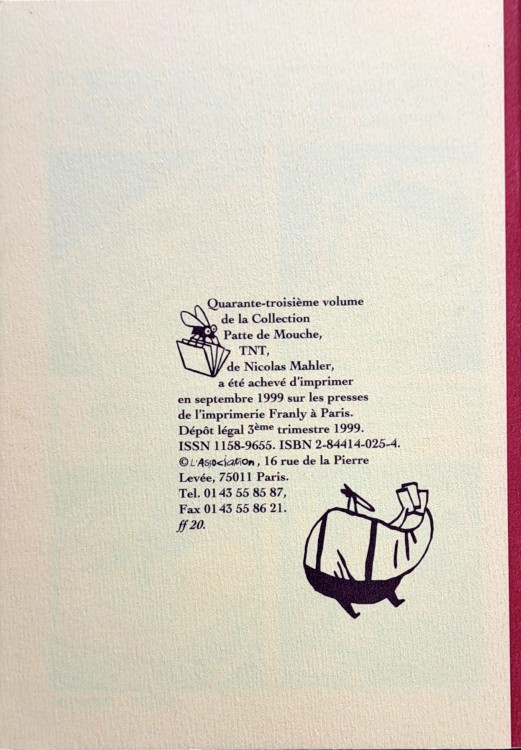 Quarante-troisième volume
de la Collection
Patte de Mouche,
TNT,
de Nicolas Mahler,
a été achevé d'imprimer
en septembre 1999 sur les presses
de l'imprimerie Franly à Paris.
Dépôt légal 3ème trimestre 1999.
ISSN 1158-9655. ISBN 2-84414-025-4.
© L'Association, 16 rue de la Pierre
Levée, 75011 Paris.
Tel. 01 43 55 85 87,
Fax 01 43 55 86 21.
ff 20.